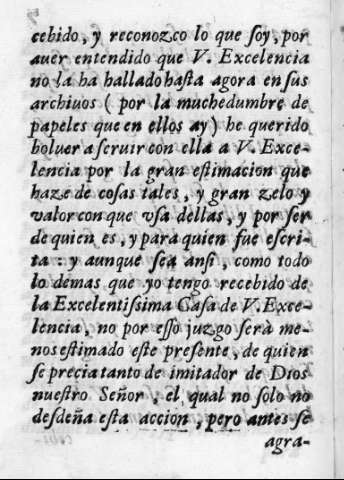 cebido, y reconozco lo que ſoy, por
auer entendido que V. Excelencia
no la ha hallado haſta agora en ſus
archiuos ( por la muchedumbre de
papeles que en ellos ay) he querido
boluer a ſeruir con ella a V. Exce-
lencia por la gran eſtimacion que
haze de coſas tales, y gran zelo y
valor con que vſa dellas, y por ſer
de quien es, y para quien fue eſcri-
ta : y aunque ſea anſi, como todo
lo demas que yo tengo recebido de
la Excelentiſsima Caſa de V. Exce-
lencia, no por eſſo juzgo ſerà me-
nos eſtimado eſte preſente, de quien
ſe precia tanto de imitador de Dios
nueſtro Señor, el qual no ſolo no
deſdeña eſta accion, pero antes ſe
agra-